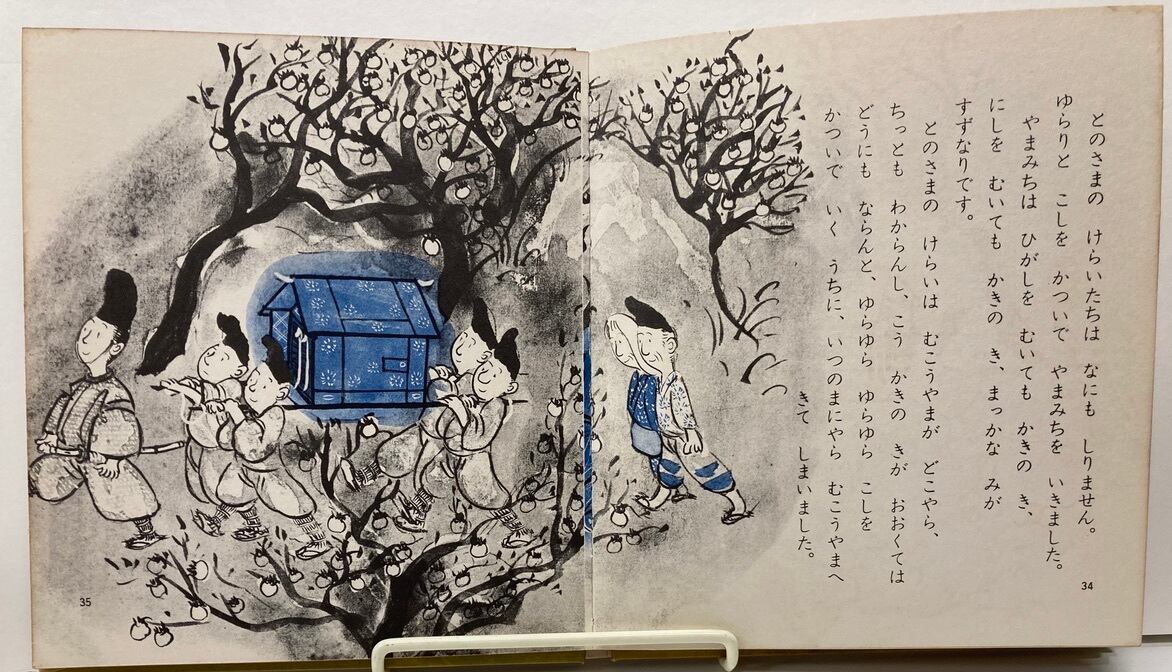 とのさまの　けらいたちは　なにも　しりません。
ゆらりと　こしを　かついで　やまみちを　いきました。
やまみちは　ひがしを　むいても　かきの　き、
にしを　むいても　かきの　き、まっかな　みが
すずなりです。
とのさまの　けらいは　むこうやまが　どこやら、
ちっとも　わからんし、こう　かきの　きが　おおくては
どうにも　ならんと、ゆらゆら　ゆらゆら　こしを
かついで　いく　うちに、いつのまにやら　むこうやまへ
きて　しまいました。
34
35